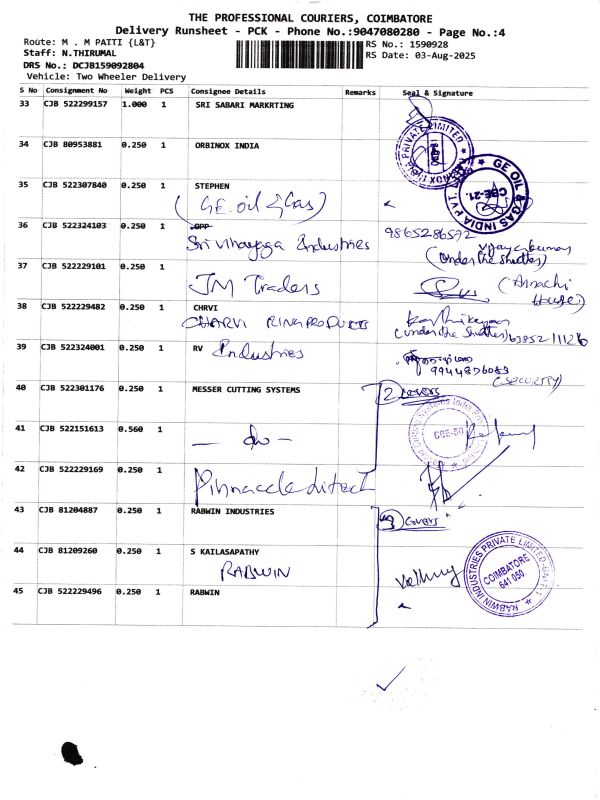 THE PROFESSIONAL COURIERS, COIMBATORE
Delivery Runsheet - PCK - Phone No.:9047080280 - Page No.:4
Route: M . M PATTI {L&T} RS No.: 1590928
Staff: N.THIRUMAL RS Date: 03-Aug-2025
DRS No.: DCJB159092804
Vehicle: Two Wheeler Delivery
S No Consignment No Weight PCS Consignee Details Remarks Seal & Signature
33 CJB 522299157 1.000 1 SRI SABARI MARKRTING
34 CJB 80953881 0.250 1 ORBINOX INDIA
35 CJB 522307840 0.250 1 STEPHEN
(GE. oil & Gas)
GE OIL & GAS INDIA PVT. CBE-21.
36 CJB 522324103 0.250 1 OPP 9865286592
Sri Vinayaga Industries Vijayakumar
(Under the Shutter)
37 CJB 522229101 0.250 1
JM Traders
38 CJB 522229482 0.250 1 CHRVI Karthikeyan
CHARVI RING PRODUCTS (Under the Shutter)
39 CJB 522324001 0.250 1 RV Industries
9944876083
(SECURITY)
40 CJB 522301176 0.250 1 MESSER CUTTING SYSTEMS 2 covers
41 CJB 522151613 0.560 1 - do -
CBE-50
42 CJB 522229169 0.250 1
43 CJB 81204887 0.250 1 RABWIN INDUSTRIES 3 Covers
44 CJB 81209260 0.250 1 S KAILASAPATHY
RABWIN
RABWIN INDUSTRIES PRIVATE LIMITED
COIMBATORE
641 050
45 CJB 522229496 0.250 1 RABWIN